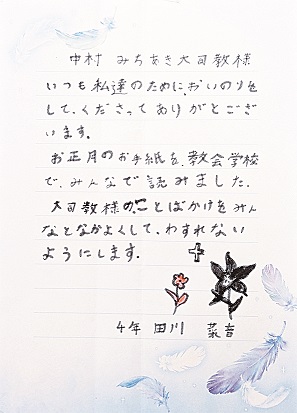 中村 みちあき大司教様
いつも私達のために、おいのりを
して、くださってありがとござ
います。
お正月のお手紙を、教会学校
で、みんなで読みました。
大司教様の、ことばかけをみん
なとなかよくして、わすれない
ようにします。
4年 田川 菜音